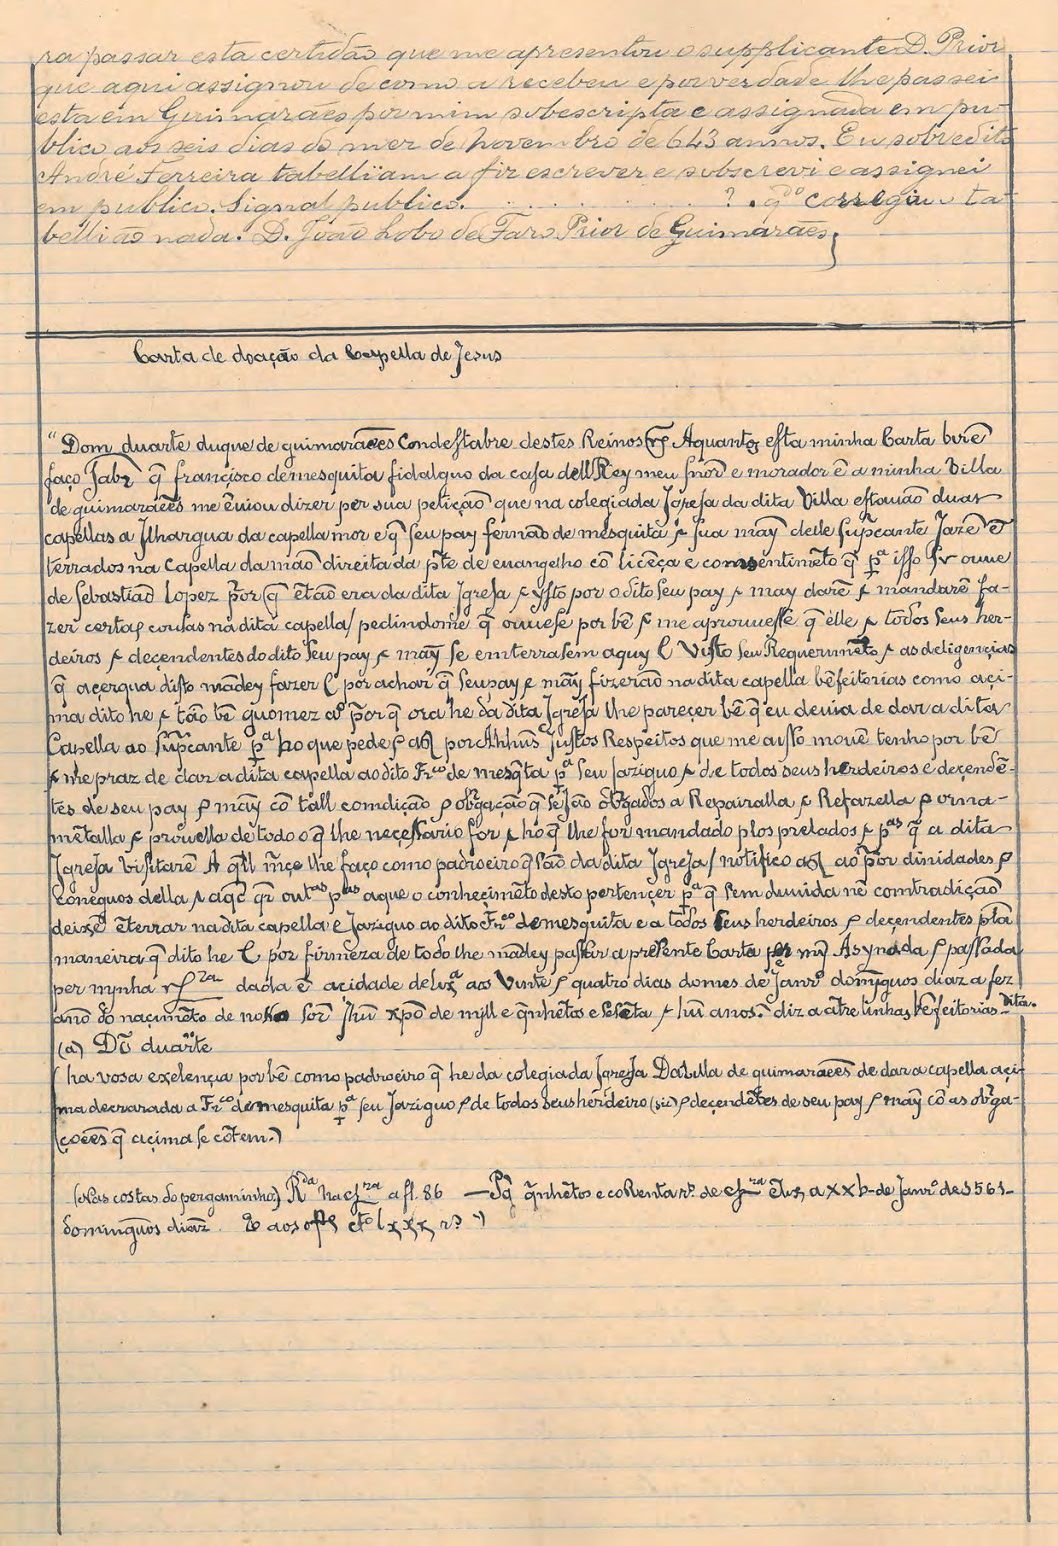 ra passar esta certidão que me apresentou o supplicante D. Prior
que aqui assignou de como a recebeu e por verdade lhe passei
esta em Guimarães por mim sobescripta e assignada em pu-
blico aos seis dias do mez de Novembro de 643 annos. Eu sobredito
André Ferreira tabelliam a fiz escrever e subscrevi e assignei
em publico. Signal publico. . . . . . . . . . . . ? . g.do corregiu o ta-
bellião nada. D. João Lobo de Faro Prior de Guimarães
Carta de doação da Capella de Jesus
"Dom duarte duque de guimarães Condestabre destes Reinos Aquantos esta minha Carta virẽ
faço saber q̃ francisco demesquita fidalguo da casa dell Rey meu sñor e morador ẽ a minha Villa
de guimarães me ẽviou dizer per sua petição que na colegiada Igreja da dita Villa estavão duas
capellas a Ilhargua da capella mor e q̃ seu pay fernão de mesquita & sua mãy delle supp̃cante Jazẽ ẽ
terrados na Capella da mão direita da p̃te de euangelho cõ licẽça e comsentimẽto q̃ p.ª isso ouue
de sebastião lopez p̃or q̃ ẽtão era da dita Igreja & ysto por o dito seu pay & may darẽ & mandarẽ fa-
zer certas cousas na dita capella / pedindome q̃ ouuese por bẽ & me aprouuesse q̃ elle & todos seus her-
deiros & deçendentes do dito seu pay & mãy se emterrasem aquy E Visto seu Requerimẽto & as deligençias
q̃ açerqua disto mãdey fazer E por achar q̃ seu pay & mãy fizerão na dita capella bẽfeitorias como açi-
ma dito he & tão bẽ guomez aº p̃or q̃ ora he da dita Igreja lhe pareçer bẽ q̃ eu deuia de dar a dita
Capella ao sup̃cante p.ª ho que pede por Alhũs Justos Respeitos que me a isto mouẽ tenho por bẽ
& me praz de dar a dita capella ao dito Fr.co de mesq̃ta p.ª seu Jaziguo & de todos seus herdeiros e deçendẽ-
tes de seu pay & mãy cõ tall comdição & obr̃gação q̃ sejão obr̃gados a Repairalla & Refazella & orna-
mẽtalla & prouella de todo o q̃ lhe neçessario for & ho q̃ lhe for mandado plos prelados & p.as q̃ a dita
Igreja Visitarẽ A q̃ll m̃ce lhe faço como padroeiro q̃ são da dita Igreja / notifico ao p̃or dinidades &
coneguos della & out.as p.as aque o conheçimẽto desto pertençer p.ª q̃ sem duvida nẽ comtradição
deixẽ ẽterrar na dita capella e Jaziguo ao dito Fr.co de mesquita e a todos seus herdeiros & deçendentes p̃la
maneira q̃ dito he E por firmeza de todo lhe mãdey passar a presente Carta per my Asynada & passada
per mynha dada ẽ a cidade de lix.ª aos Vinte & quatro dias domes de Janr.º domĩguos diaz a fez
anõ do naçimẽto de noso sõr Jhũ xpõ de mill e q̃nhẽtos e sesẽta & hũ anos. diz a ãtre linhas bẽfeitorias – Dita.
(a) Dõ duarte
(ha vosa exelençia por bẽ como padroeiro q̃ he da colegiada Igreja Davilla de guimarães de dar a capella açi-
ma decrarada a Fr.co de mesquita p.ª seu Jaziguo & de todos seus herdeiro (sic) & deçendẽtes de seu pay & mãy cõ as obr̃ga-
ções q̃ açima se cõtem.)
(Nas costas do pergaminho:) R.da na a fl. 86 — Pg q̃nhẽtos e coRenta rs. de a xxb de Janr.º de 1561 –
dominguos diaz aos ofes